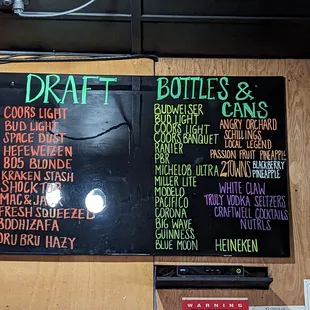 DRAFT
COORS LIGHT
BUD LIGHT
SPACE DUST
HEFEWEIZEN
805 BLONDE
KRAKEN STASH
SHOCK TO
MAC & JA
FRESH SQUEEZED
BODHIZAFA
DRU BRU HAZY
BOTTLES &
CANS
BUDWEISER
BUD LIGHT
COORS LIGHT
COORS BANQUET
RANIER
PBR
MICHELOB ULTRA
MILLER LITE
MODELO
PACIFICO
CORONA
BIG WAVE
GUINNESS
BLUE MOON
ANGRY ORCHARD
SCHILLINGS
LOCAL LEGEND
PASSION FRUIT PINEAPPLE
2 TOWNS BLACKBERRY
PINEAPPLE
WHITE CLAW
TRULY VODKA SELTZERS
CRAFTWELL COCKTAILS
NUTRLS
HEINEKEN
WARNING